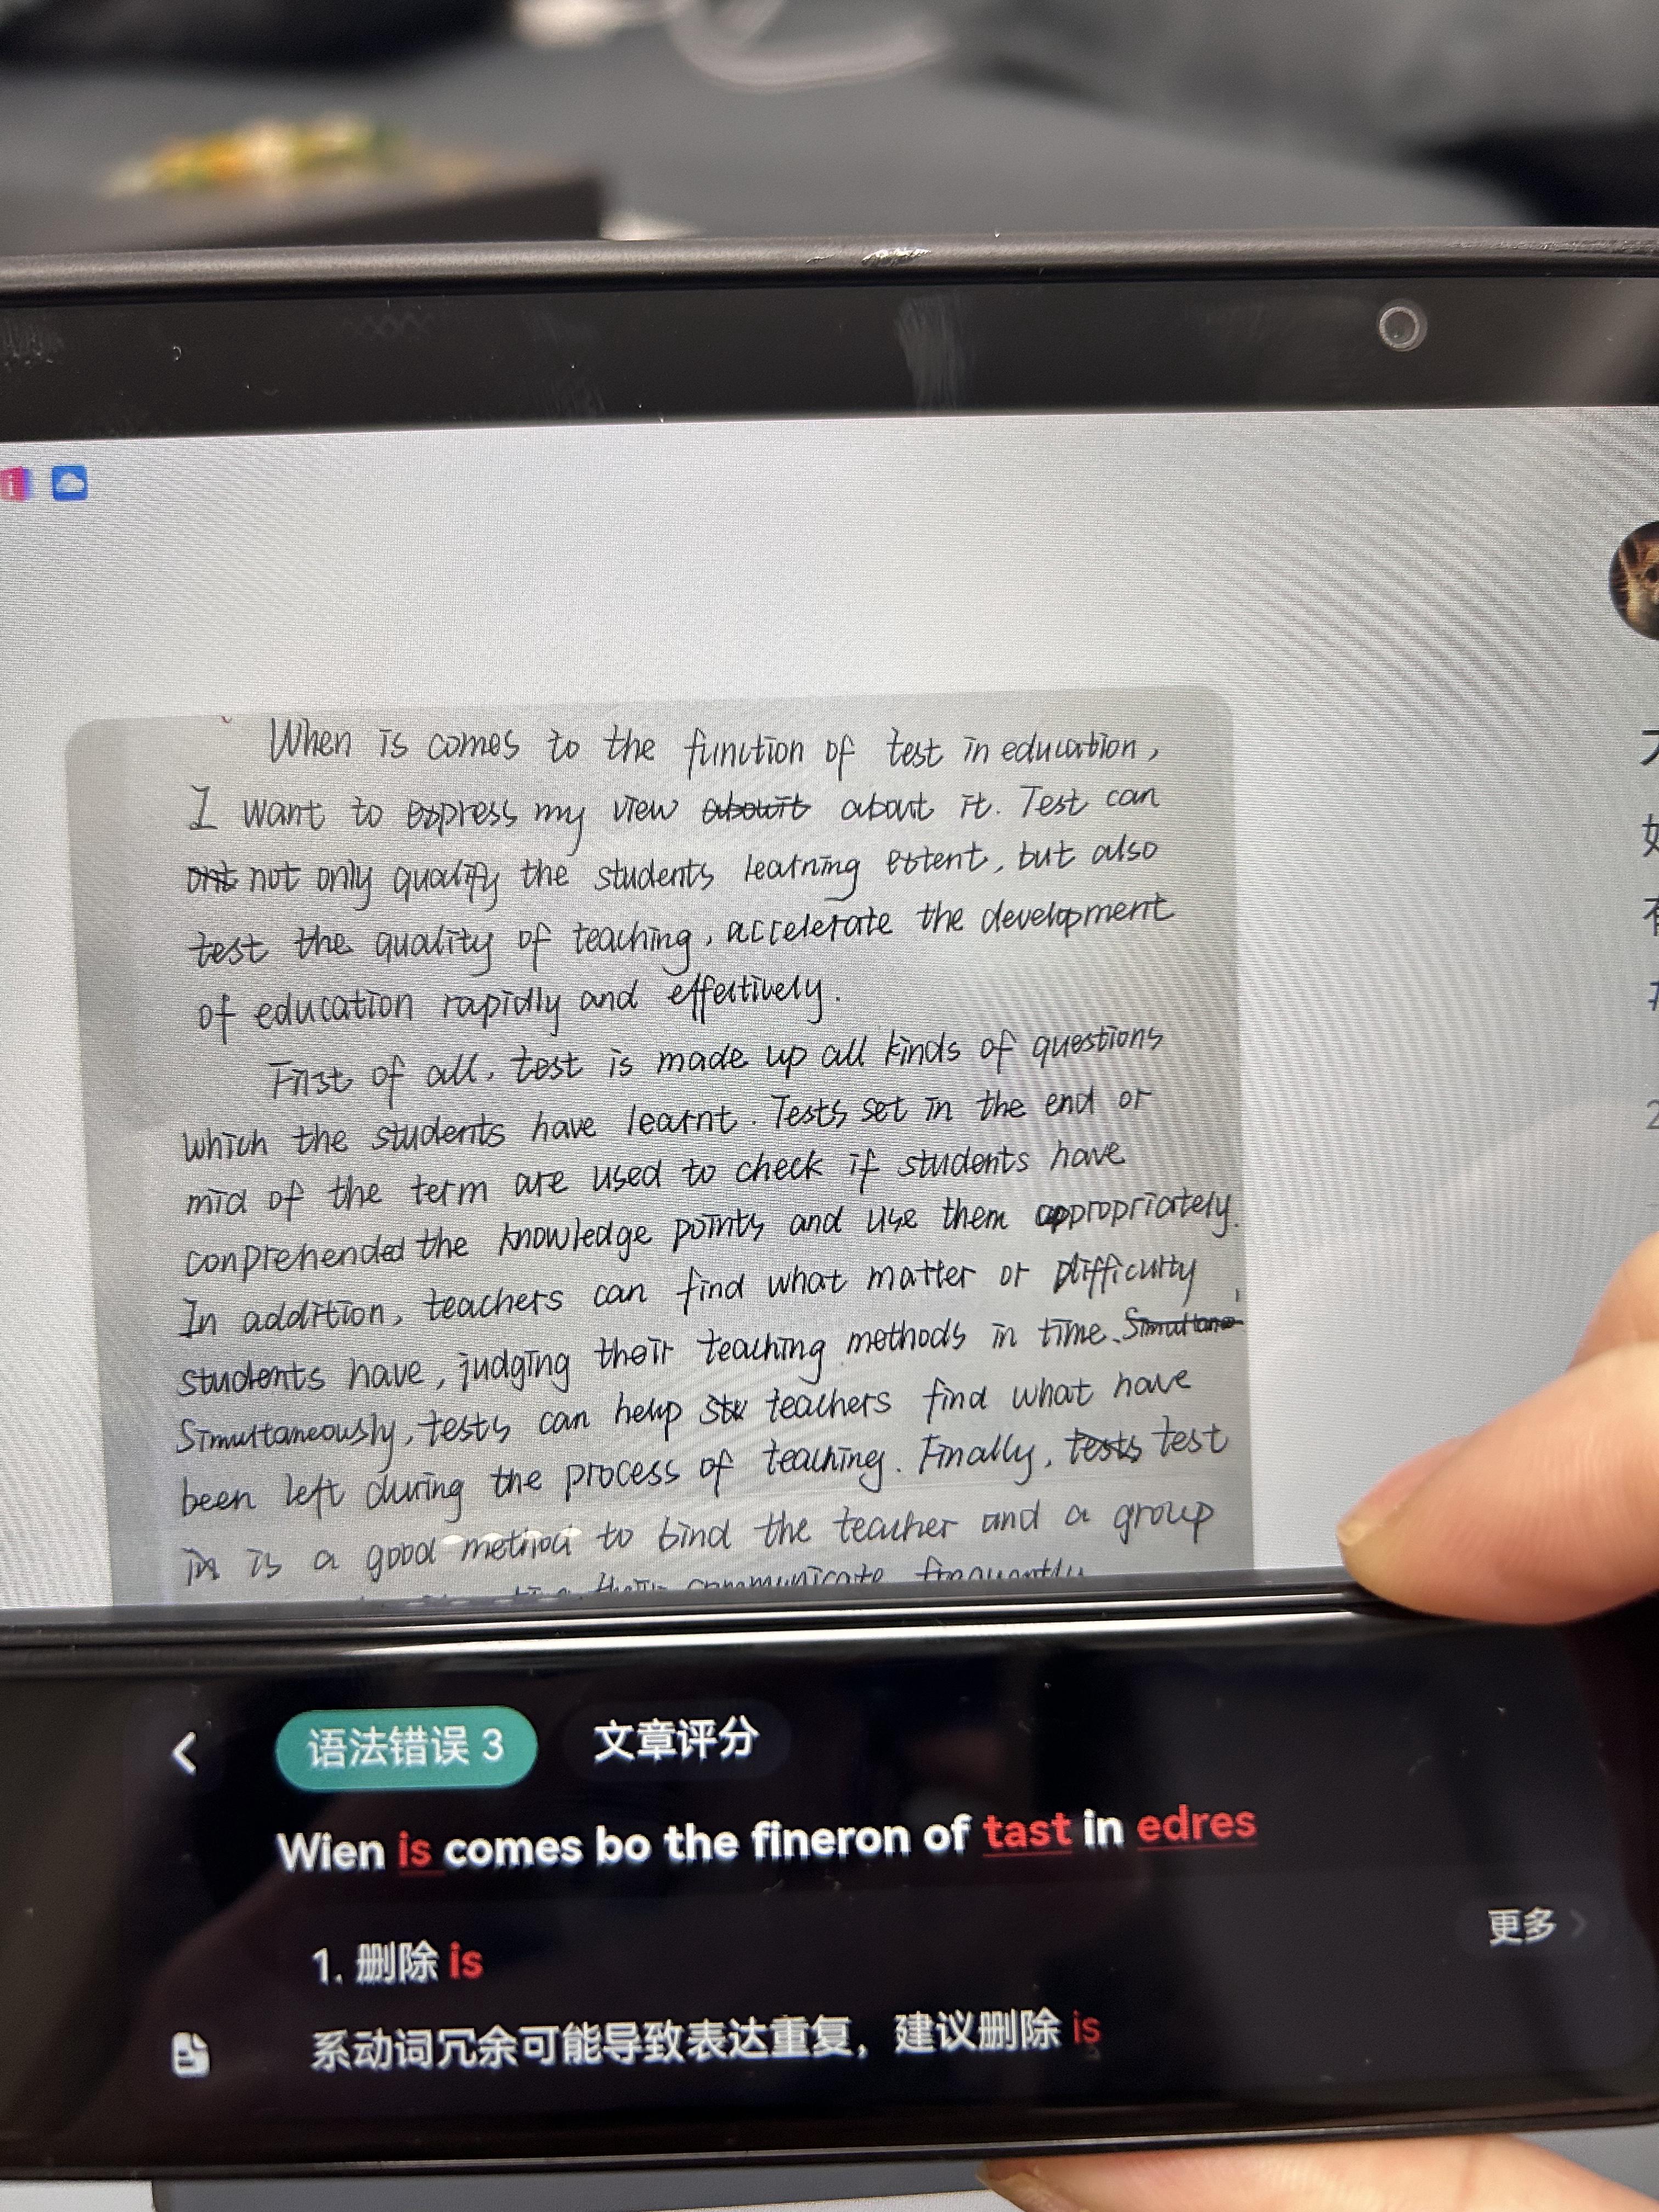 When is comes to the function of test in education,
I want to express my view about it. Test can
not only qualify the students learning extent, but also
test the quality of teaching, accelerate the development
of education rapidly and effectively.
First of all, test is made up all kinds of questions
which the students have learnt. Tests set in the end or
mid of the term are used to check if students have
conprehended the knowledge points and use them appropriately.
In addition, teachers can find what matter or difficulty
students have, judging their teaching methods in time.
Simultaneously, tests can help teachers find what have
been left during the process of teaching. Finally, test
is a good method to bind the teacher and a group
their communicate frequently
语法错误 3 文章评分
Wien is comes bo the fineron of tast in edres
1. 删除 is
更多
系动词冗余可能导致表达重复，建议删除 is